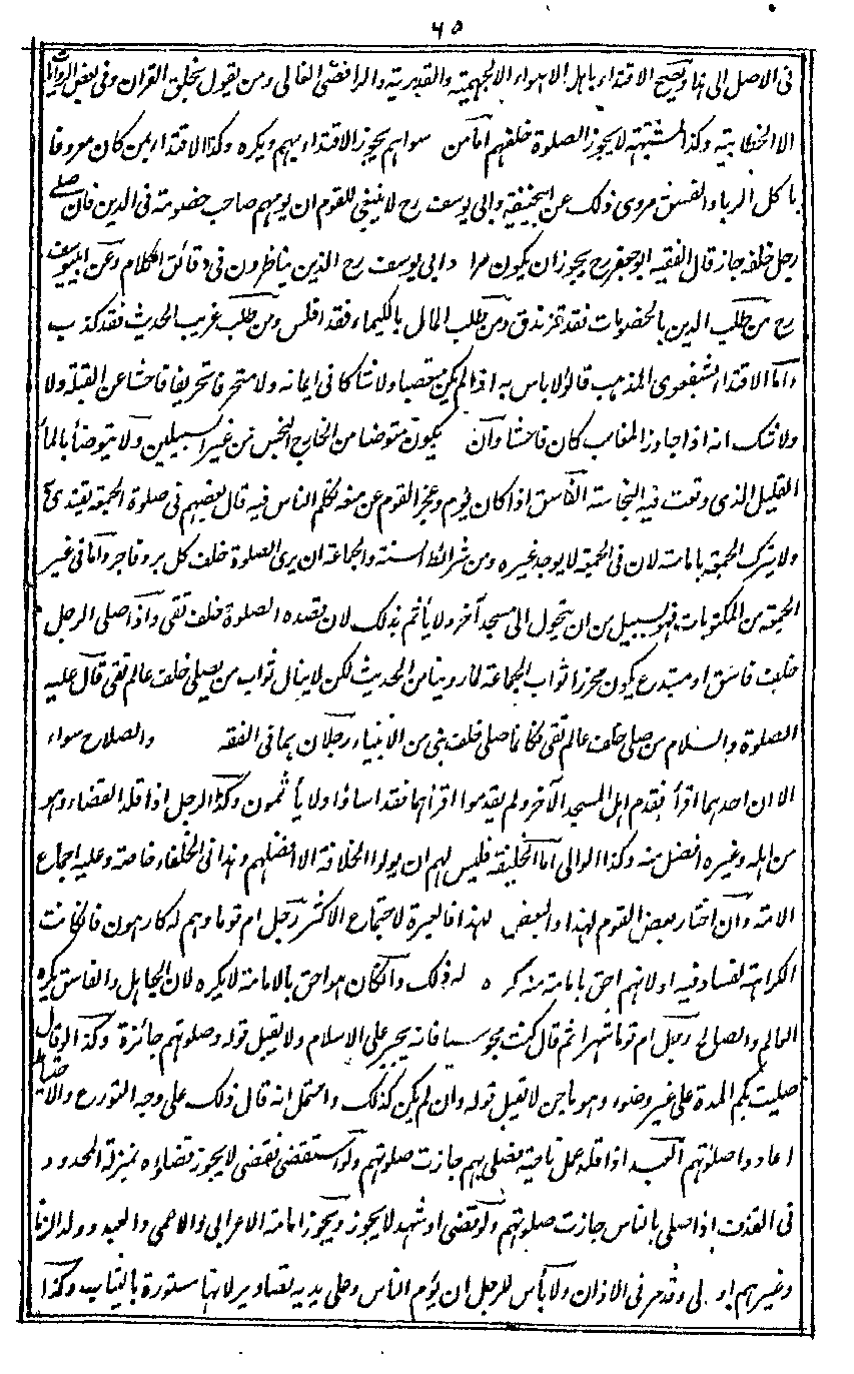 ٤٥
فى الاصل الى هنا ويصح الاقتداء باهل الاهواء الا الجهمية والقدرية والرافضى الغالى ومن يقول بخلق القران وفى بعض الروايات
الا الخطابية وكذا المشبهة لا يجوز الصلوة خلفهم امامن سواهم يجوز الاقتداء بهم ويكره وكذا الاقتداء بمن كان معروفا
باكل الربا والفسق مروى ذلك عن ابيحنيفة وابى يوسف رح لا ينبغى للقوم ان يؤمهم صاحب خصومة فى الدين فان صلى
رجل خلفه جاز قال الفقيه ابوجعفر رح يجوز ان يكون مراد ابى يوسف رح الذين يناظرون فى دقائق الكلام وعن ابييوسف
رح من طلب الدين بالخصومات فقد تزندق ومن طلب المال بالكيمياء فقد افلس ومن طلب غريب الحديث فقد كذب
واما الاقتداء بشفعوى المذهب قالوا لا باس به اذا لم يكن متعصبا ولا شاكا فى ايمانه ولا متحرفا تحريفا فاحشا عن القبلة ولا
ولا شك انه اذا جاوز المغارب كان فاحشا وان يكون متوضا من الخارج النجس من غير السبيلين ولا يتوضأ بالماء
القليل الذى وقعت فيه النجاسة الفاسق اذا كان يؤم وعجز القوم عن منعه تكلم الناس فيه قال بعضهم فى صلوة الجمعة يقتدى به
ولا يترك الجمعة بامامته لان فى الجمعة لا يوجد غيره ومن شرائط السنة والجماعة ان يرى الصلوة خلف كل بر وفاجر واما فى غير
الجمعة من المكتوبات فهو بسبيل من ان يتحول الى مسجد آخر ولا يأثم بذلك لان قصده الصلوة خلف تقى واذا صلى الرجل
خلف فاسق او مبتدع يكون محرزا ثواب الجماعة لما روينا من الحديث لكن لا ينال ثواب من يصلى خلف عالم تقى قال عليه
الصلوة والسلام من صلى خلف عالم تقى فكانما صلى خلف نبى من الانبياء رجلان هما فى الفقه والصلاح سواء
الا ان احدهما اقرأ فقدم اهل المسجد الآخر ولم يقدموا اقرأهما فقد اساؤا ولا يأثمون وكذا الرجل اذا قلد القضاء وهو
من اهله وغيره افضل منه وكذا الوالى اما الخليفة فليس لهم ان يولوا الخلافة الا افضلهم وهذا فى الخلفاء خاصة وعليه اجماع
الامة وان اختار بعض القوم لهذا والبعض لهذا فالعبرة لاجتماع الاكثر رجل ام قوما وهم له كارهون فان كانت
الكراهة لفساد فيه او لانهم احق بامامة منه كره له ذلك وان كان هو احق بالامامة لا يكره لان الجاهل والفاسق يكره
العالم والصالح رجل ام قوما شهرا ثم قال كنت مجوسيا فانه يجبر على الاسلام ولا يقبل قوله وصلوتهم جائزة وكذا لو قال
صليت بكم المدة على غير وضوء وهو ماجن لا تقبل قوله وان لم يكن كذلك واحتمل انه قال ذلك على وجه التورع والاحتياط
اعادوا صلوتهم العبد اذا قلد عمل ناحية فصلى بهم جازت صلوتهم ولو استقضى فقضى لا يجوز قضاؤه بمنزلة المحدود
فى القذف اذا صلى بالناس جازت صلوتهم ولو قضى او شهد لا يجوز ويجوز امامة الاعرابى والاعمى والعبد وولد الزنا
وغيرهم اولى وقد مر فى الاذان ولا بأس للرجل ان يؤم الناس وعلى يديه تصاوير لانها مستورة بالثياب وكذا